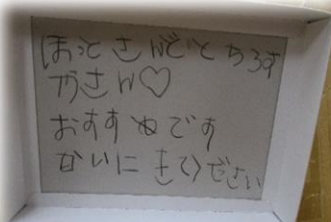 ほっとさんどいとちろす
かさん♡
おすすぬです
かいにきてひださい